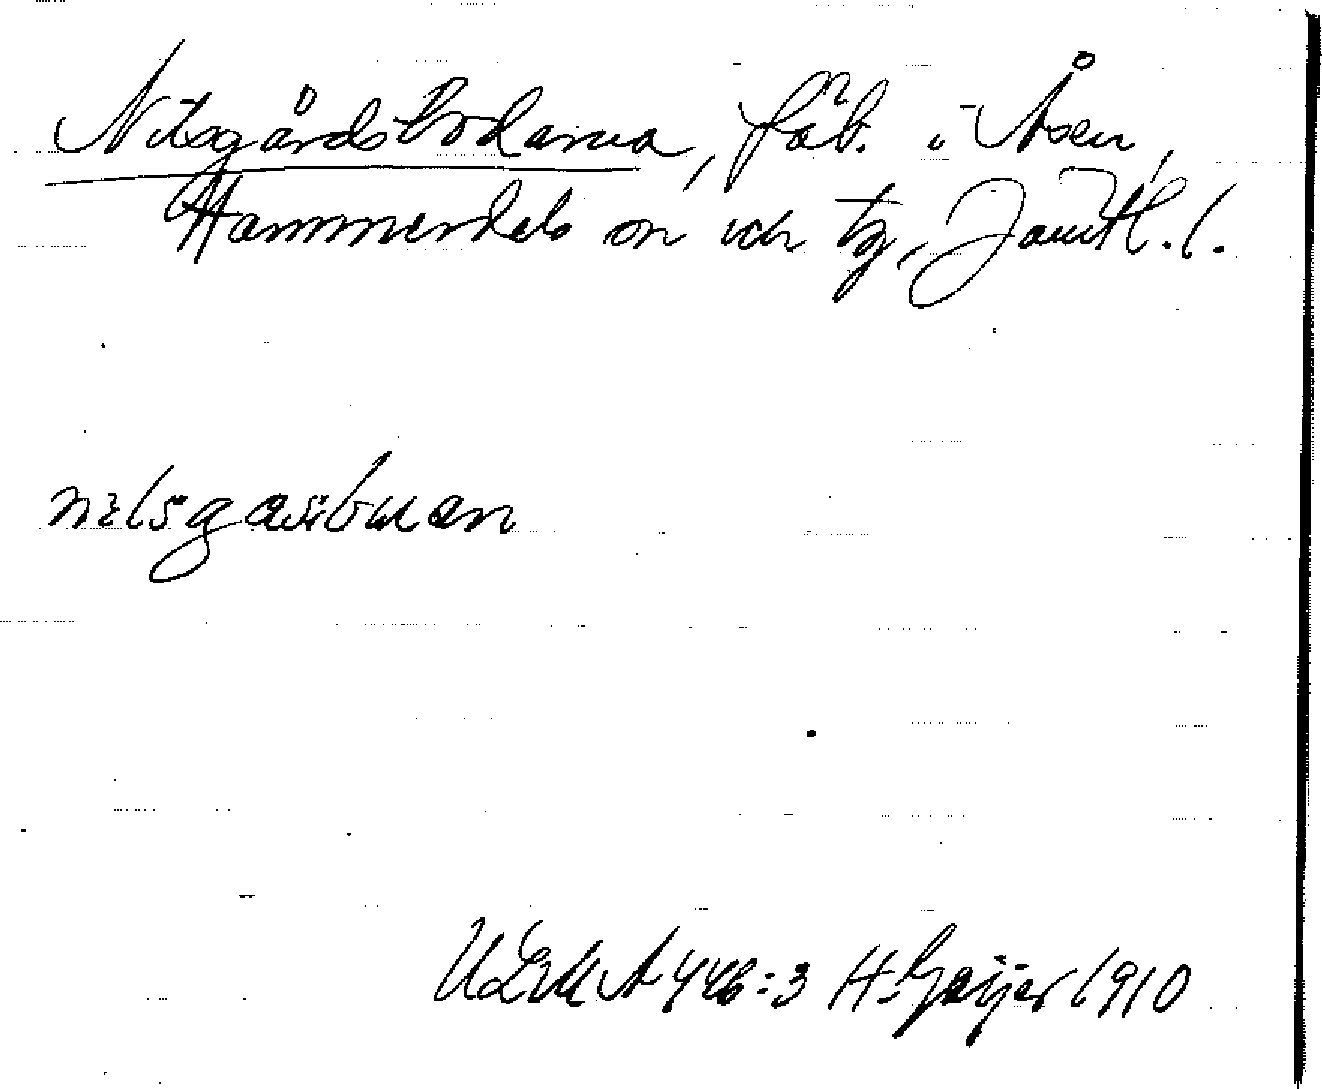 Nilsgårdsbodarna, fäb. i Åsen,
Hammerdals sn och tg, Jämtl. l.
nilsgasbuan
ULMA 446:3 H. Geijer 1910